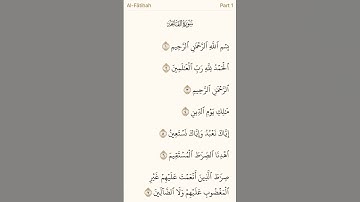 Al-Fātihah Part 1
سُورَةُ ٱلْفَاتِحَةِ
بِسْمِ ٱللَّهِ ٱلرَّحْمَٰنِ ٱلرَّحِيمِ ١
ٱلْحَمْدُ لِلَّهِ رَبِّ ٱلْعَٰلَمِينَ ٢
ٱلرَّحْمَٰنِ ٱلرَّحِيمِ ٣
مَٰلِكِ يَوْمِ ٱلدِّينِ ٤
إِيَّاكَ نَعْبُدُ وَإِيَّاكَ نَسْتَعِينُ ٥
ٱهْدِنَا ٱلصِّرَٰطَ ٱلْمُسْتَقِيمَ ٦
صِرَٰطَ ٱلَّذِينَ أَنْعَمْتَ عَلَيْهِمْ غَيْرِ
ٱلْمَغْضُوبِ عَلَيْهِمْ وَلَا ٱلضَّآلِّينَ ٧